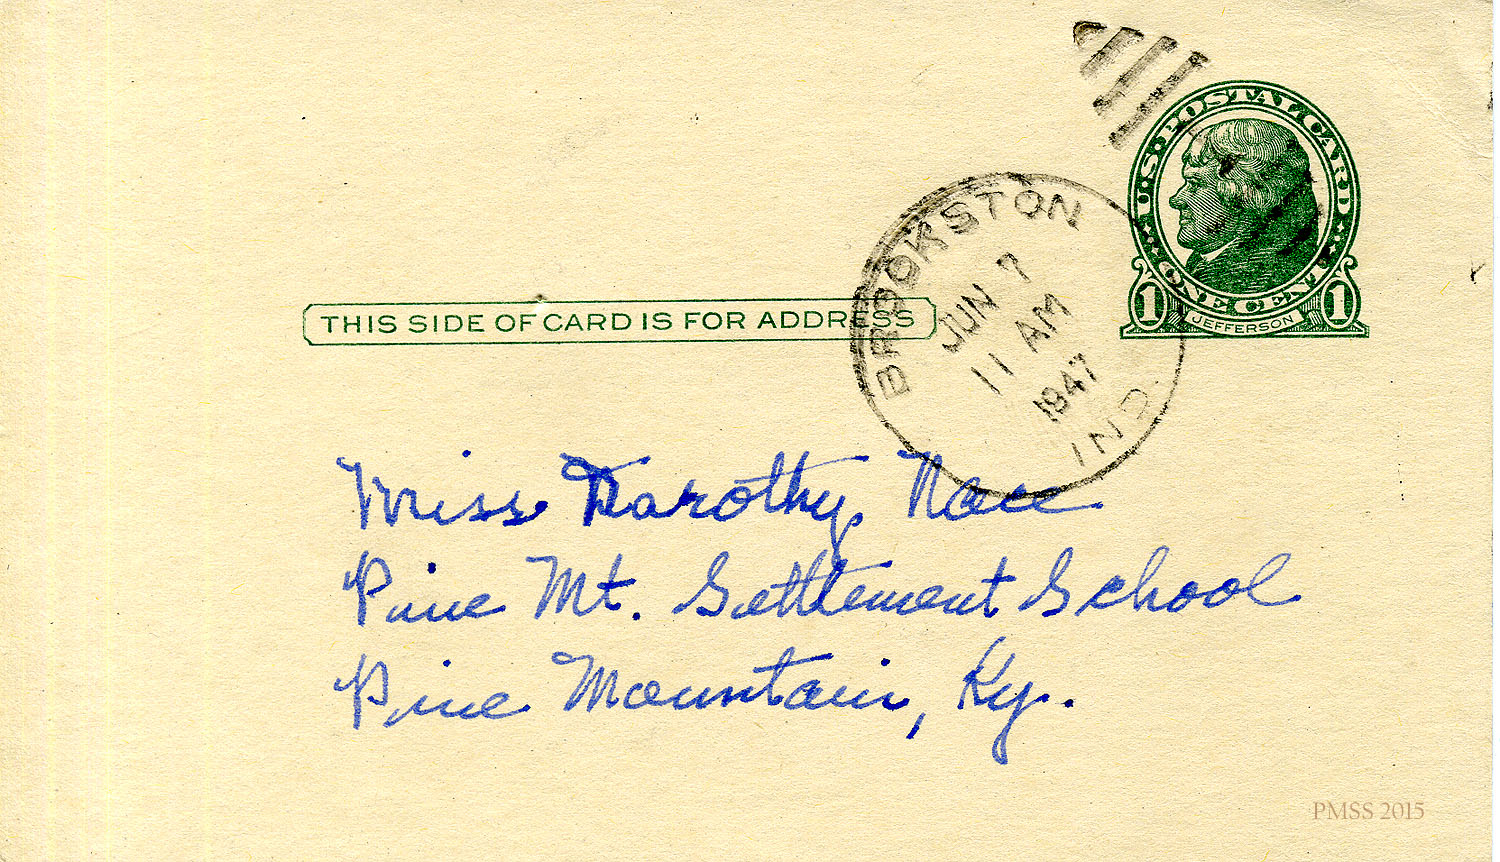 U.S. POSTAL CARD
ONE CENT
1 JEFFERSON 1
BROOKSTON
JUN 7
11 AM
1947
IND.
THIS SIDE OF CARD IS FOR ADDRESS
Miss Dorothy Nace
Pine Mt. Settlement School
Pine Mountain, Ky.
PMSS 2015